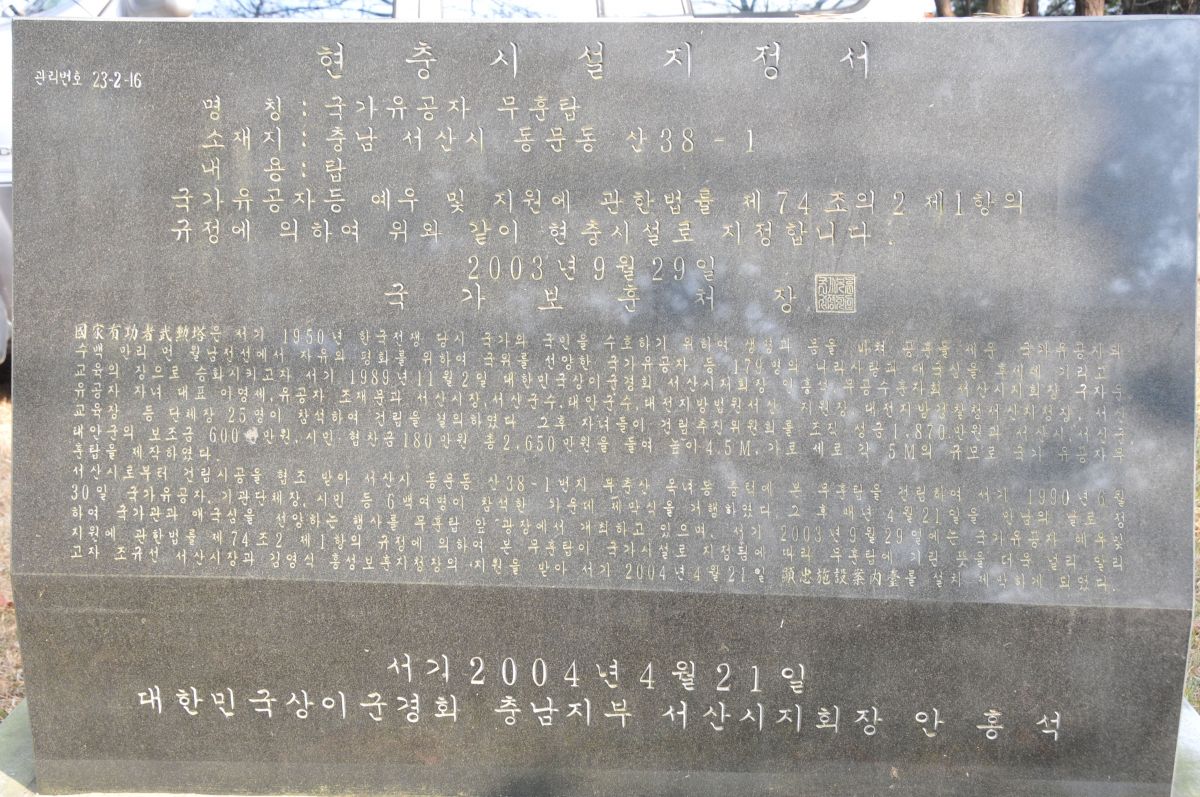 현충시설지정서
관리번호 23-2-16
명 칭 : 국가유공자 무훈탑
소재지 : 충남 서산시 동문동 산38-1
내 용 : 탑
국가유공자등 예우 및 지원에 관한법률 제74조의2 제1항의
규정에 의하여 위와 같이 현충시설로 지정합니다.
2003년9월29일
국가보훈처장
國家有功者武勳塔은 서기 1950년 한국전쟁 당시 국가와 국민을 수호하기 위하여 생명과 몸을 바쳐 공훈을 세우 국가유공자와
수백 만리 먼 월남전선에서 자유와 평화를 위하여 국위를 선양한 국가유공자 등 179명의 나라사랑과 애국심을 후세에 기리고
교육의 장으로 승화시키고자 서기 1989년11월2일 대한민국상이군경회 서산시지회장 안홍석 무공수훈자회 서산시지회장
유공자 자녀 대표 이명세, 유공자 조재문과 서산시장, 서산군수, 태안군수, 대전지방법원서산 지원장, 대전지방검찰청서산지청장, 서산
교육장 등 단체장 25명이 참석하여 건립을 결의하였다 그후 자녀들이 건립추진위원회를 조직 성금1,870만원과 서산시, 서산군,
태안군의 보조금 600만원, 시민 헌찬금180만원 총2,650만원을 들여 높이4.5M, 가로 세로 각 5M의 규모로 국가 유공자무
훈탑을 제작하였다.
서산시로부터 건립시공을 협조 받아 서산시 동문동 산38-1번지 부춘산 옥녀봉 중턱에 본 무훈탑을 건립하여 서기 1990년 6월
30일 국가유공자, 기관단체장, 시민 등 6백여명이 참석한 가운데 제막식을 거행하였다 그후 매년 4월21일을 만남의 날로 정
하여 국가관과 애국심을 선양하는 행사를 무훈탑 앞 광장에서 개최하고 있으며, 서기 2003년 9월29일에는 국가유공자 예우및
지원에 관한법률 제74조2 제1항의 규정에 의하여 본 무훈탑이 국가시설로 지정됨에 따라 무훈탑에 기린 뜻을 더욱 널리 알리
고자 조규선 서산시장과 김영식 홍성보훈지청장의 지원을 받아 서기 2004년4월21일 顯忠施設案內臺를 설치 제막하게 되었다.
서기2004년4월21일
대한민국상이군경회 충남지부 서산시지회장 안홍석